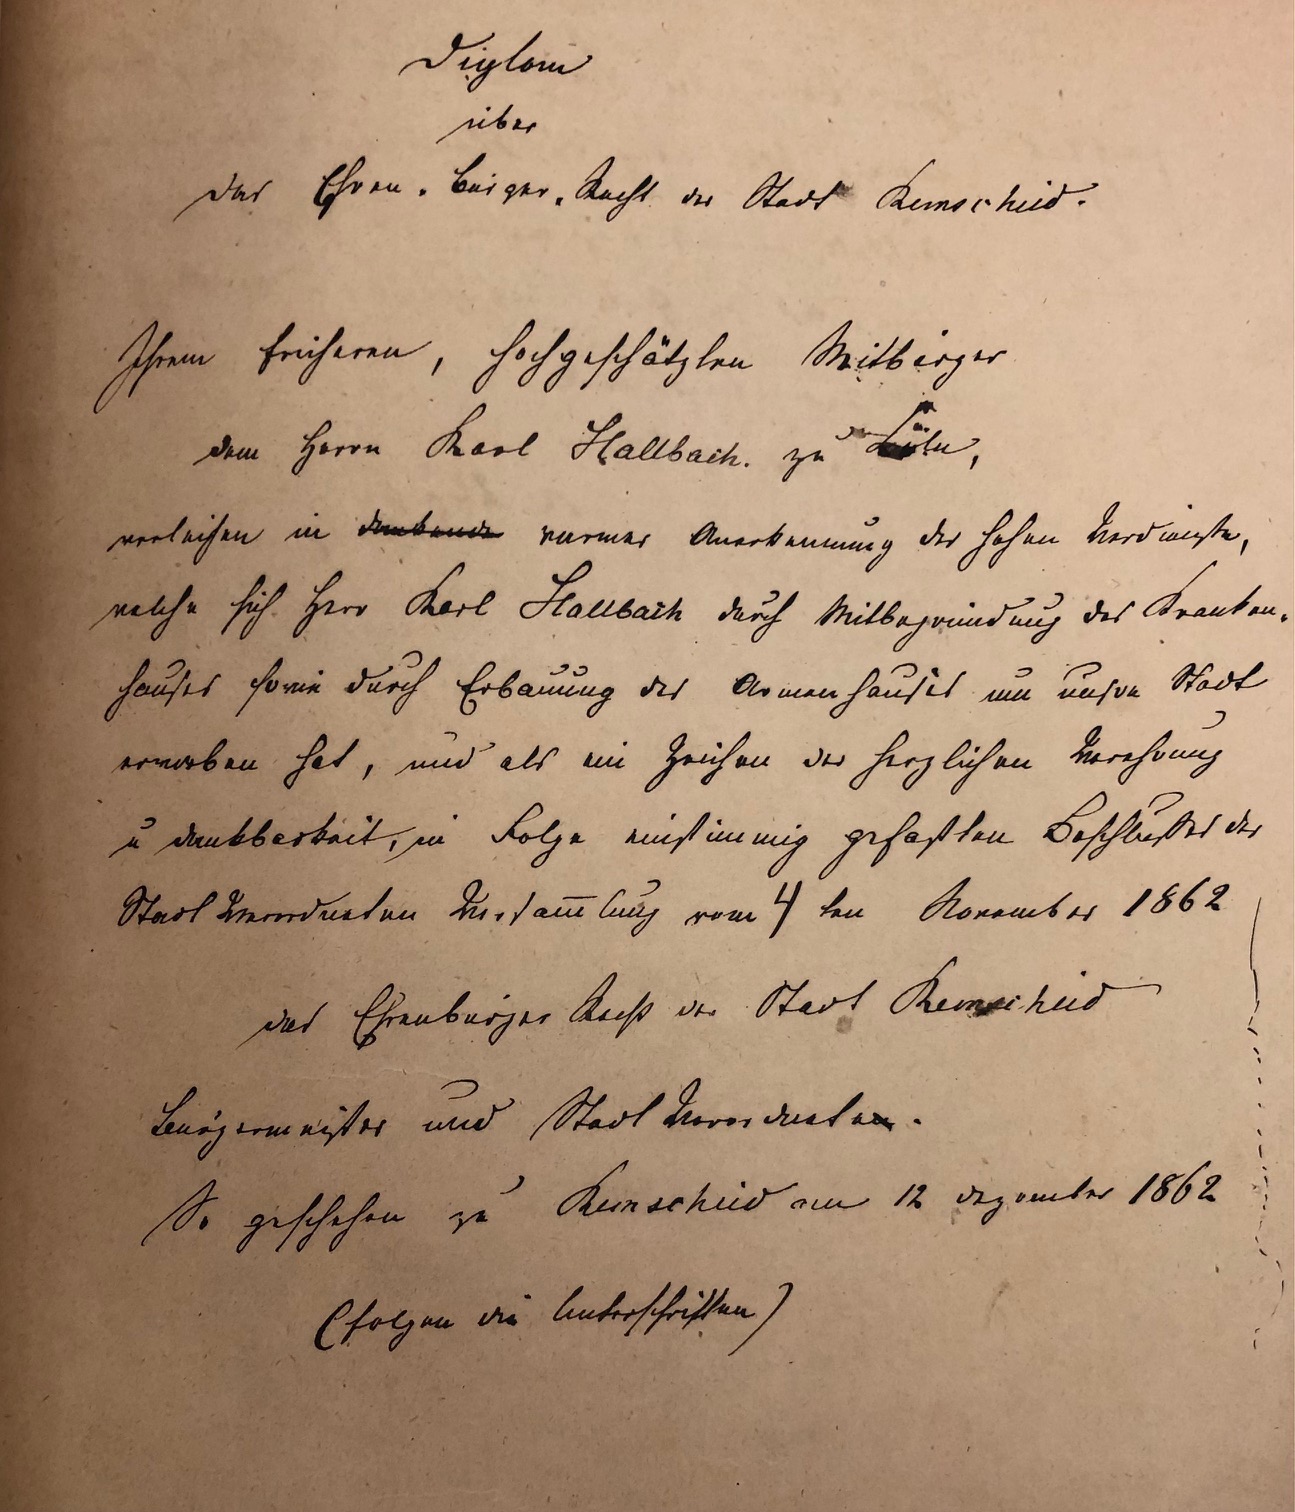 Diplom
über
das Ehren-Bürger-Recht der Stadt Remscheid.
Ihrem früheren, hochgeschätzten Mitbürger
dem Herrn Karl Hallbach. zu Köln,
verleihen in dankende warmer Anerkennung der hohen Verdienste,
welche sich Herr Karl Hallbach durch Mitbegründung des Kranken-
hauses sowie durch Erbauung des Armenhauses um unsre Stadt
erworben hat, und als ein Zeichen der herzlichen Verehrung
u Dankbarkeit, in Folge einstimmig gefaßten Beschlußes der
Stadt Verordneten Versam̅lung vom 4 ten November 1862
das Ehrenbürger Recht der Stadt Remscheid
Bürgermeister und Stadt Verordneten.
So geschehen zu Remscheid am 12 Dezember 1862
(folgen die Unterschriften)